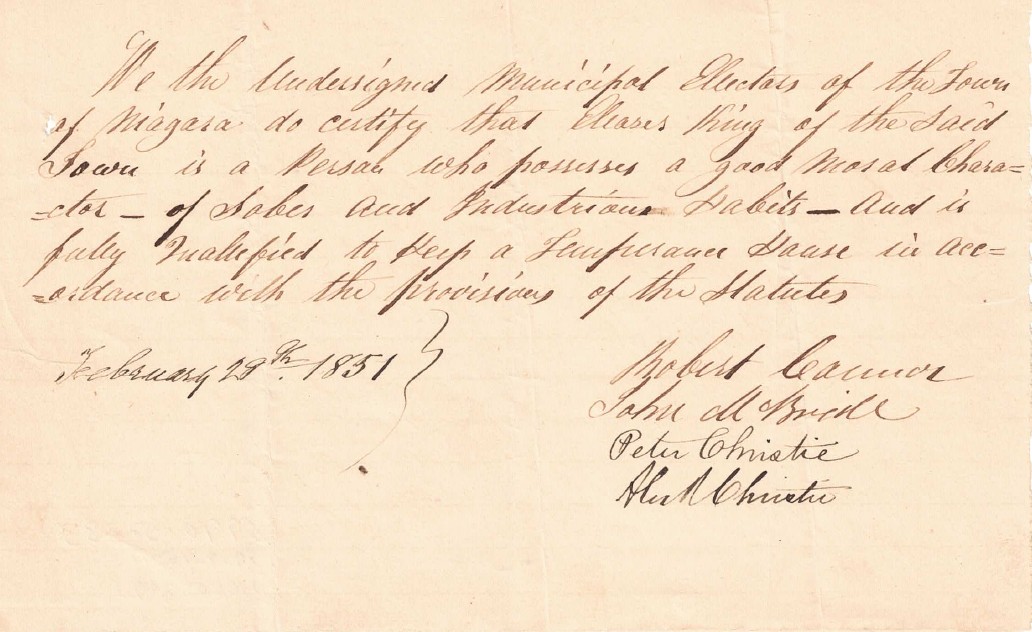 We the Undersigned Municipal Electors of the Town
of Niagara do certify that Eleares King of the Said
Town is a Person who possesses a good Moral Chara=
=ctor – of Sober and Industrious Habits – And is
fully Quallefied to Keep a Temperance House in acc=
=ordance with the provisions of the Statutes
February 28th. 1851
Robert Connor
John McBride
Peter Christie
Alex R Christie